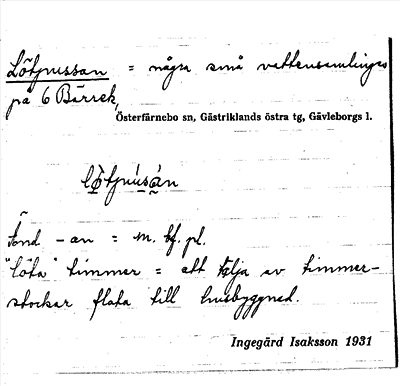 Lötpussan = några små vattensamlingar
på 6 Bärrek,
Österfärnebo sn, Gästriklands östra tg, Gävleborgs l.
lö̀tpùsàn
tond -an = m. bf. pl.
"löta" timmer = att tälja av timmer-
stockar flata till husbyggned.
Ingegärd Isaksson 1931